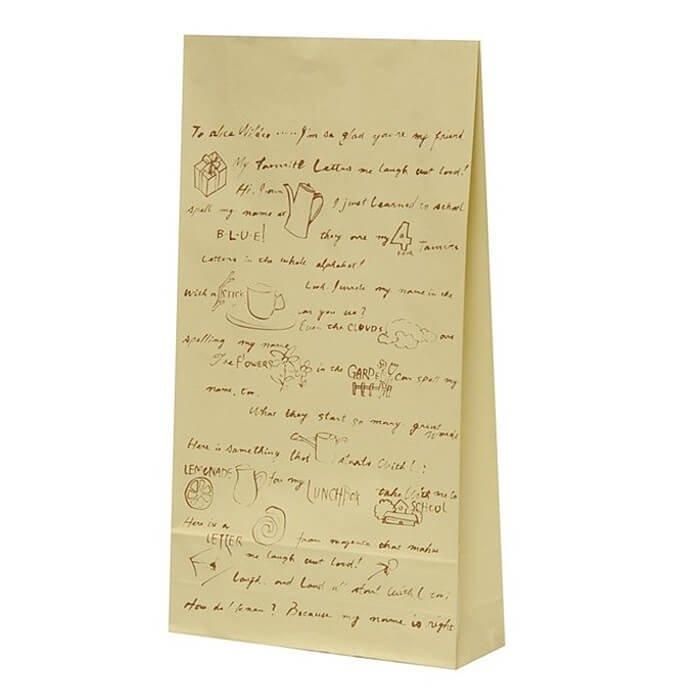 To alice Wilder ..... I'm so glad you're my friend
My favorite Letters me laugh out loud!
Hi, I am I just learned in school
spell my name at
B·L·U·E! they are my 4 FOUR favorite
Letters in the whole alphabet!
With a STICK Look, I wrote my name in the
can you see?
Even the CLOUDS are
spelling my name
The FLOWERS in the GARDEN can spell my
name, too.
What they start so many great words
Here is something that starts With L:
LEMONADE for my LUNCHBOX take With me to
SCHOOL
Here is a
LETTER from magenta that makes
me laugh out loud!
Laugh and Loud start With L too;
How do I know? Because my name is right